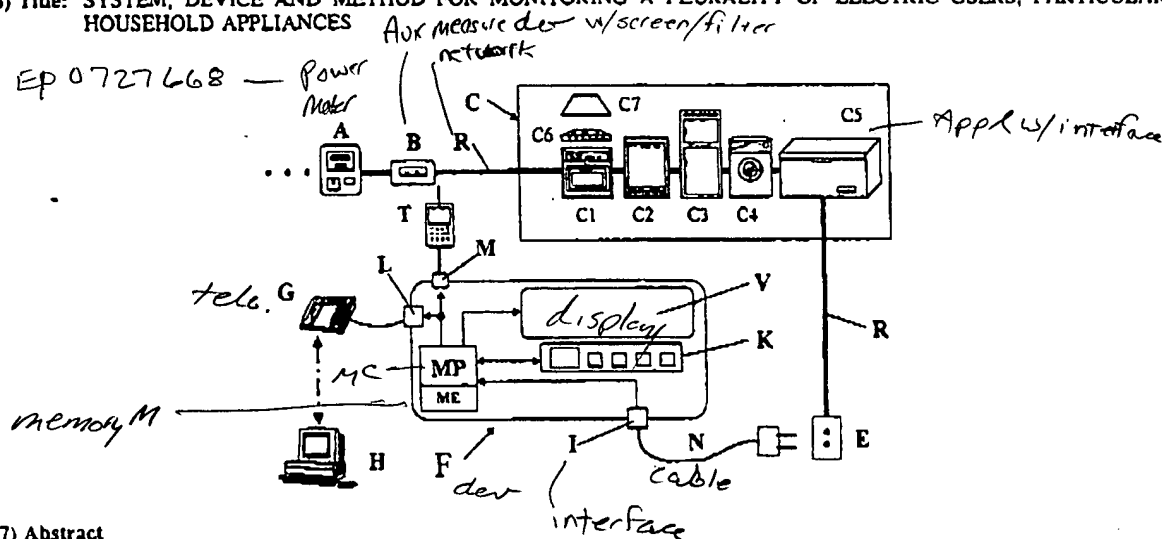 Title: SYSTEM, DEVICE AND METHOD FOR MONITORING A PLURALITY OF ELECTRIC USERS, PARTICULAR
HOUSEHOLD APPLIANCES
Aux measure dev w/screen/filter
network
EP 0727668 — Power
Meter
A
B
R
C
C7
C6
C5
Appl w/interface
C1
C2
C3
C4
T
M
L
tele. G
V
display
K
R
MC
MP
ME
memory M
H
F
dev
I
N
cable
E
interface
7) Abstract